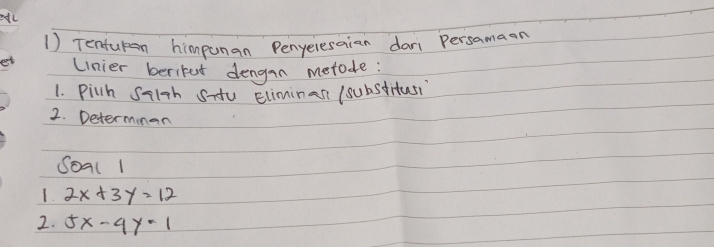 1) Tentukan himpunan Penyelesaian dari Persamaan
Linier berikut dengan metode :
1. Pilih Salah Satu Eliminasi / substitusi
2. Determinan
Soal 1
1. 2x + 3y = 12
2. 5x - 4y = 1